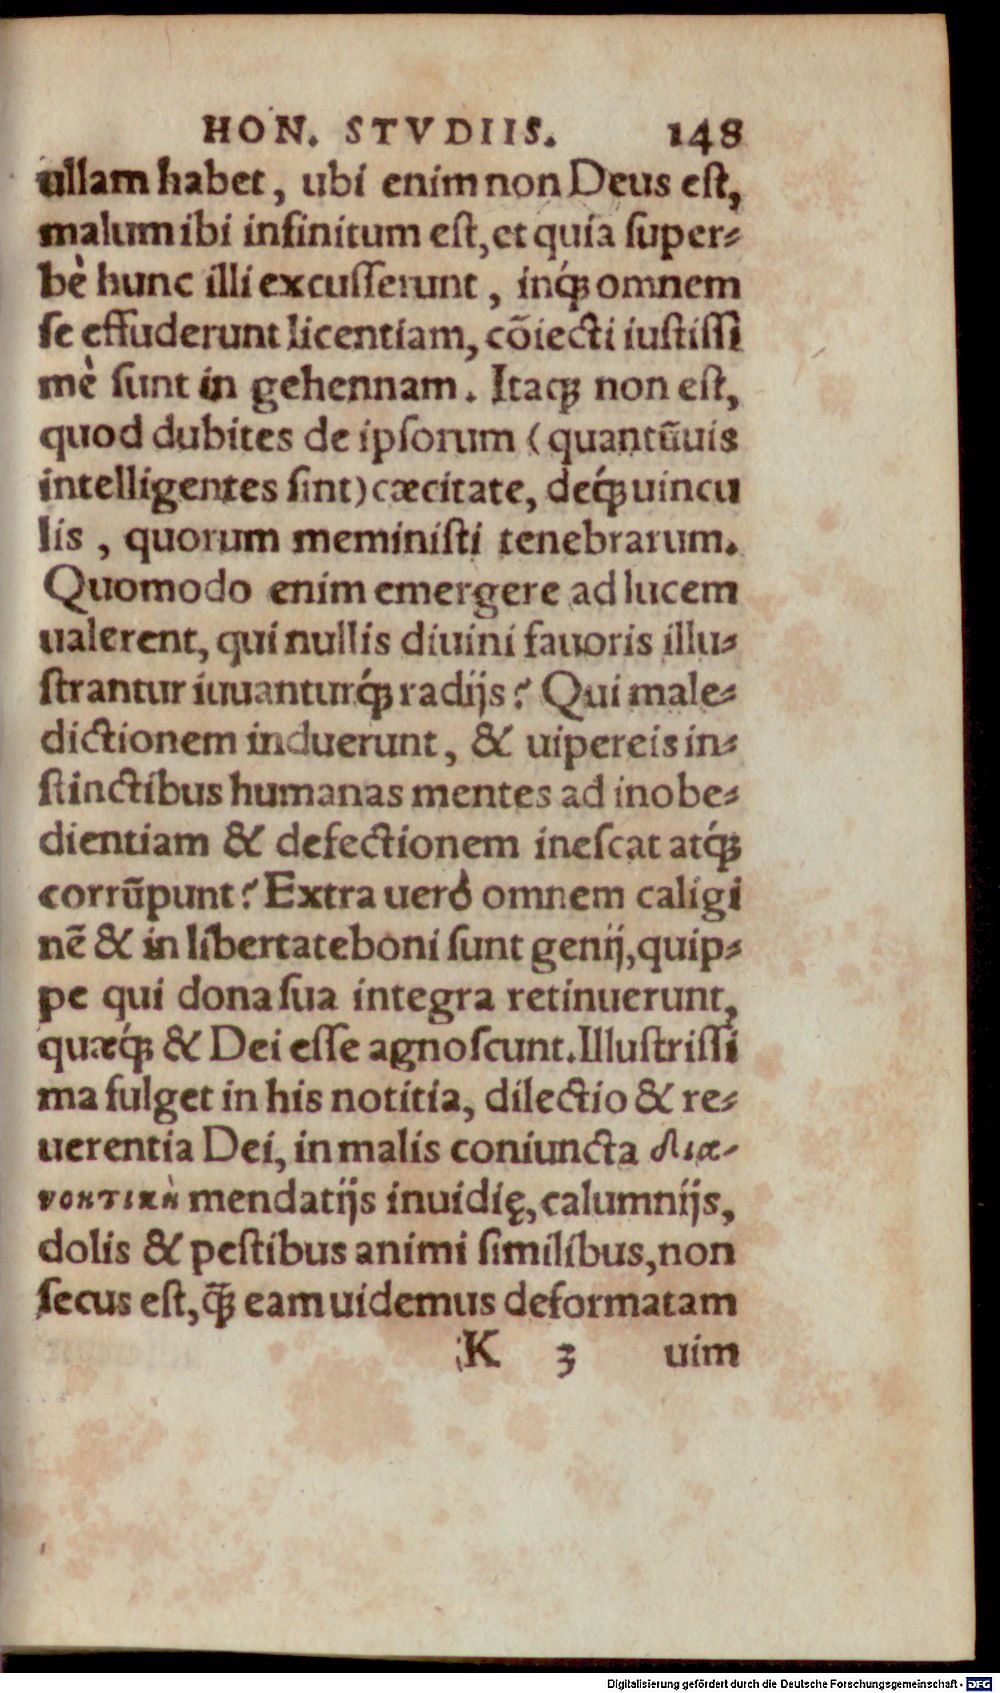 HON. STVDIIS. 148
ullam habet, ubi enim non Deus eſt,
malum ibi infinitum eſt, et quia ſuper-
bè hunc illi excuſſerunt, inq́; omnem
ſe effuderunt licentiam, cōiecti iuſtiſſi
mè ſunt in gehennam. Itaq; non eſt,
quod dubites de ipſorum (quantũuis
intelligentes ſint) cæcitate, deq́; uincu
lis, quorum meminiſti tenebrarum.
Quomodo enim emergere ad lucem
ualerent, qui nullis diuini fauoris illu-
ſtrantur iuuanturq́; radijs? Qui male-
dictionem induerunt, & uipereis in-
ſtinctibus humanas mentes ad inobe-
dientiam & defectionem ineſcat atq́;
corrũpunt? Extra uerò omnem caligi
nẽ & in libertate boni ſunt genij, quip-
pe qui dona ſua integra retinuerunt,
quæq́; & Dei eſſe agnoſcunt. Illuſtriſſi
ma fulget in his notitia, dilectio & re-
uerentia Dei, in malis coniuncta δια-
νοητικὴ mendatijs inuidię, calumnijs,
dolis & peſtibus animi ſimilibus, non
ſecus eſt, q̃; eam uidemus deformatam
K 3 uim
Digitalisierung gefördert durch die Deutsche Forschungsgemeinschaft - DFG